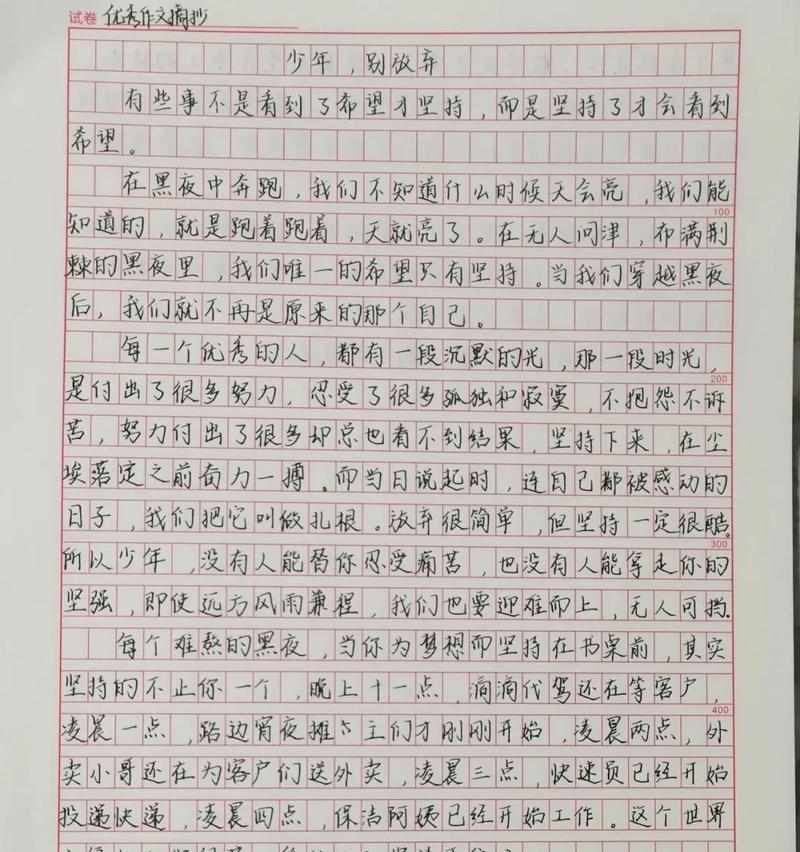 试卷 优秀作文摘抄
少年，别放弃
有些事不是看到了希望才坚持，而是坚持了才会看到
希望。
在黑夜中奔跑，我们不知道什么时候天会亮，我们能
100
知道的，就是跑着跑着，天就亮了。在无人问津，布满荆
棘的黑夜里，我们唯一的希望只有坚持。当我们穿越黑夜
后，我们就不再是原来的那个自己。
每一个优秀的人，都有一段沉默的光，那一段时光，
200
是付出了很多努力，忍受了很多孤独和寂寞，不抱怨不诉
苦，努力付出了很多却总也看不到结果，坚持下来，在尘
埃落定之前奋力一搏。而当日说起时，连自己都被感动的
日子，我们把它叫做扎根。放弃很简单，但坚持一定很酷。
300
所以少年，没有人能替你忍受痛苦，也没有人能拿走你的
坚强，即使远方风雨兼程，我们也要迎难而上，无人可挡.
每个难熬的黑夜，当你为梦想而坚持在书桌前，其实
坚持的不止你一个，晚上十一点，滴滴代驾还在等客户，
400
凌晨一点，路边宵夜摊 主们才刚刚开始，凌晨两点，外
卖小哥还在为客户们送外卖，凌晨三点，快递员已经开始
投递快递，凌晨四点，保洁阿姨已经开始工作。这个世界